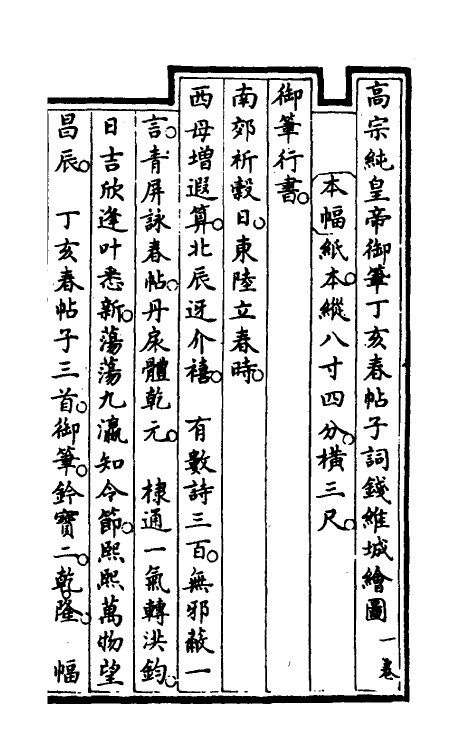 高宗純皇帝御筆丁亥春帖子詞錢維城繪圖一卷
本幅紙本縱八寸四分橫三尺
御筆行書
南郊祈穀日東陸立春時
西母增遐算北辰迓介禧 有數詩三百無邪蔽一
言青屏詠春帖丹扆體乾元 棣通一氣轉洪鈞
日吉欣逢叶悉新蕩蕩九瀛知令節熙熙萬物望
昌辰 丁亥春帖子三首御筆鈐寶二乾隆 幅